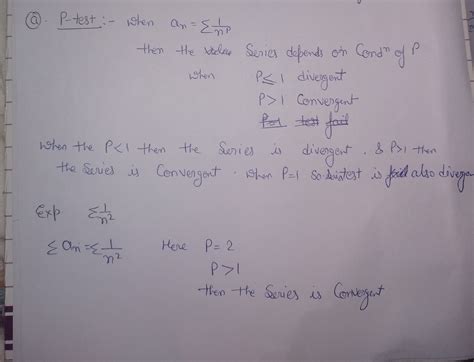 ⓐ. P-test :- when an = Σ 1/n^p
then the Series depends on Condn of P
when P ≤ 1 divergent
P > 1 Convergent
P=1 test fail
when the P<1 then the Series is divergent. & P>1 then
the Series is Convergent. when P=1 so test is also diverge
Exp Σ 1/n²
Σ an = Σ 1/n² Here P = 2
P > 1
then the Series is Convergent